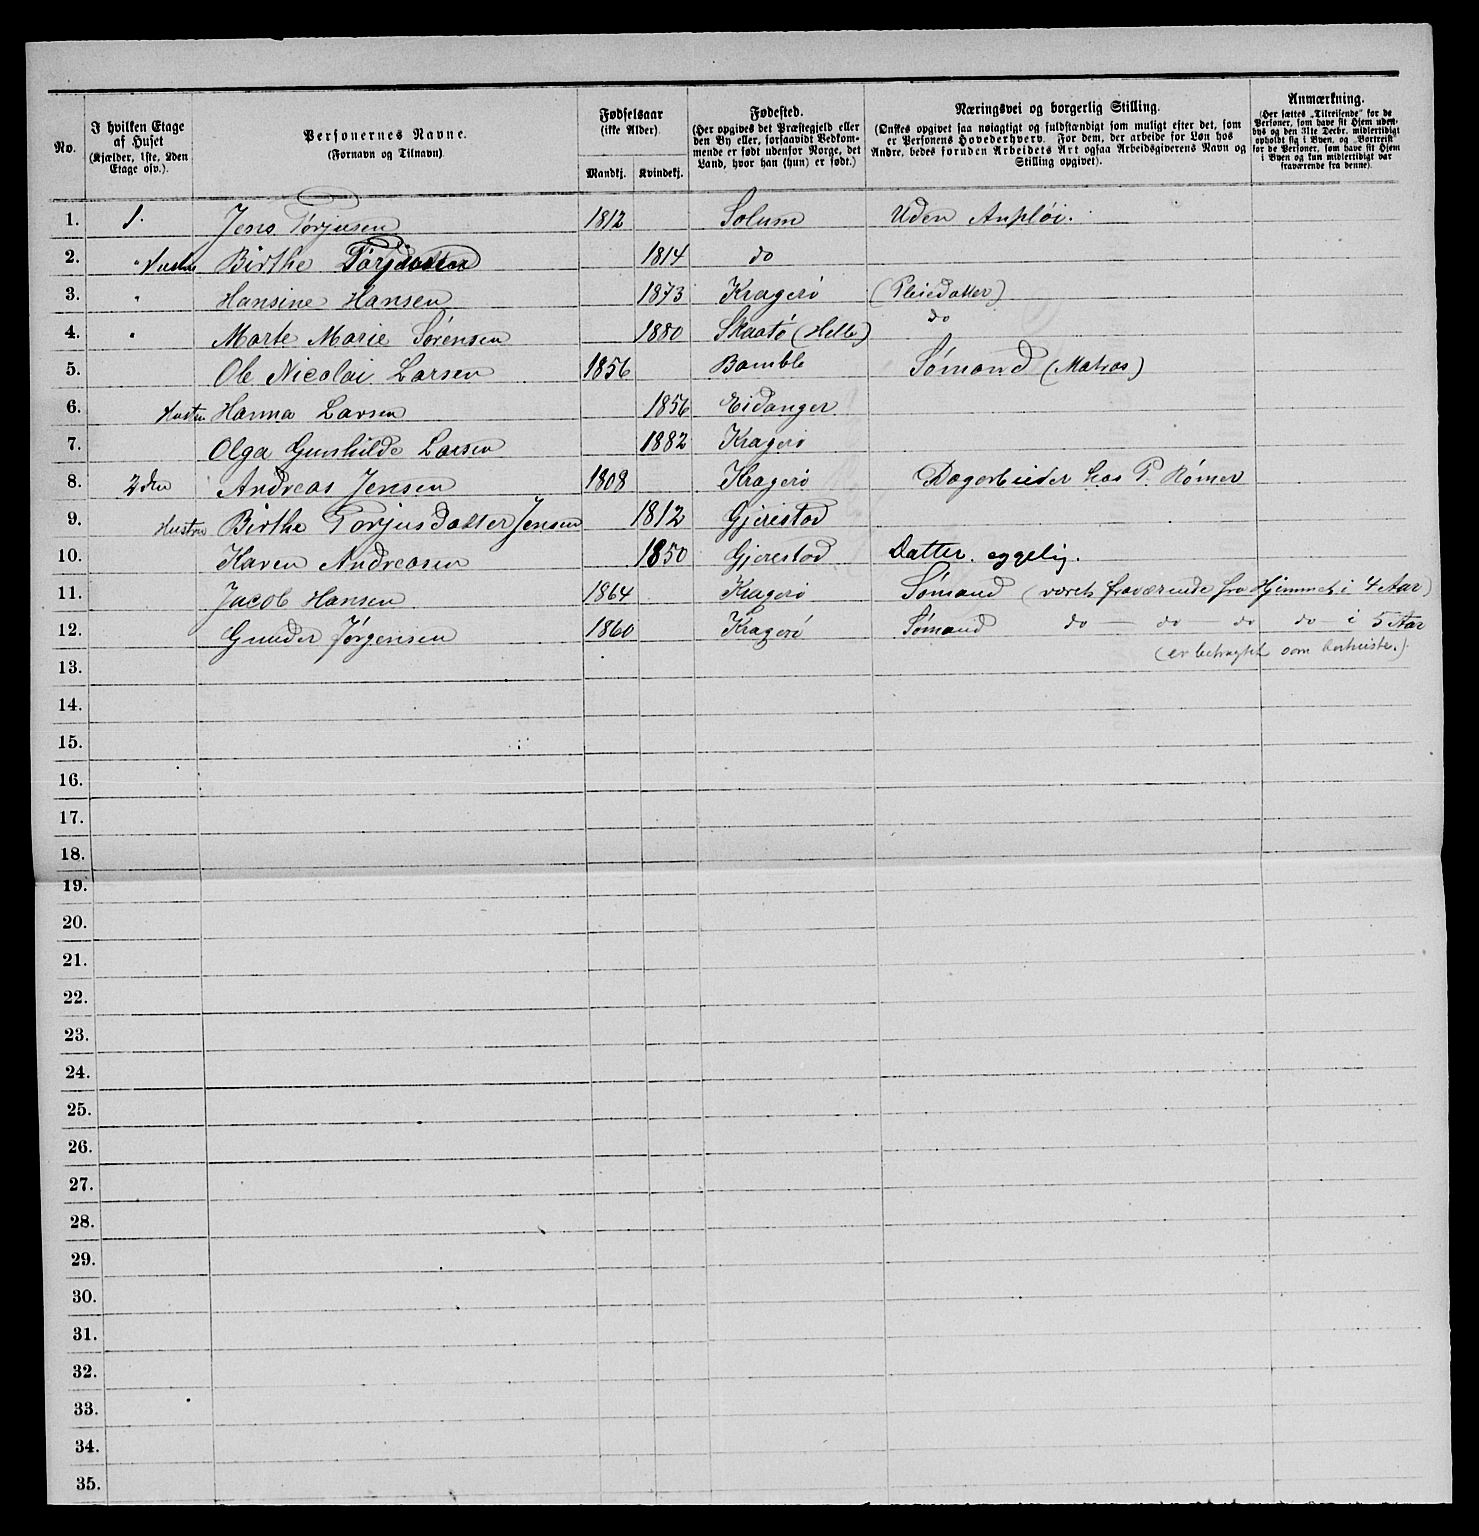 No.
I hvilken Etage
af Huset
(Kjælder, 1ste, 2den
Etage osv.).
Personernes Navne.
(Fornavn og Tilnavn).
Fødselsaar
(ikke Alder).
Mandkj. Kvindekj.
Fødested.
(Her opgives det Præstegjeld eller
den By eller, forsaavidt Vedkom-
mende er født udenfor Norge, det
Land, hvor han (hun) er født.)
Næringsvei og borgerlig Stilling.
(Ønskes opgivet saa nøiagtigt og fuldstændigt som muligt efter det, som
er Personens Hovederhverv. For dem, der arbeide for Løn hos
Andre, bedes foruden Arbeidets Art ogsaa Arbeidsgiverens Navn og
Stilling opgivet).
Anmærkning.
(Her sættes „Tilreisende“ for de
Personer, som have sit Hjem uden-
bys og den 31te Decbr. midlertidigt
opholdt sig i Byen, og „Bortreist“
for de Personer, som have sit Hjem
i Byen og kun midlertidigt var
fraværende fra denne).
1. 1. Jens Torjusen 1812 Solum Uden Anpløi.
2. " Hustru Birthe 1814 do
3. " Hansine Hansen 1873 Kragerø (Pleiedatter)
4. " Marte Marie Sørensen 1880 Skaatø (Helle) do
5. Ole Nicolai Larsen 1856 Bamble Sømand (Matros)
6. Hustru Hanna Larsen 1856 Eidanger
7. Olga Gunhilde Larsen 1882 Kragerø
8. 2den Andreas Jensen 1808 Kragerø Dagarbeider hos P. Rømer
9. Hustru Birthe Torjusdatter Jensen 1812 Gjerestad
10. Karen Andreasen 1850 Gjerestad Datter. eggelig.
11. Jacob Hansen 1864 Kragerø Sømand (været fraværende fra Hjemmet i 4 Aar)
12. Gunder Jørgensen 1860 Kragerø Sømand do — do do do i 5 Aar
13. (er betragtet som bortreiste.)
14.
15.
16.
17.
18.
19.
20.
21.
22.
23.
24.
25.
26.
27.
28.
29.
30.
31.
32.
33.
34.
35.